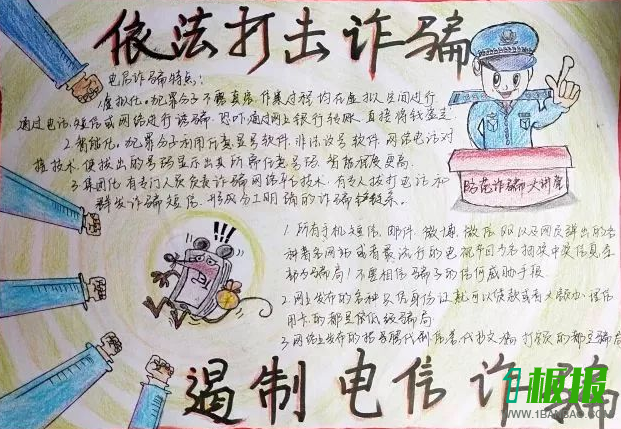 依法打击诈骗
电信诈骗特点：
1.虚拟化。犯罪分子不需真身，作案过程均在虚拟空间进行
通过电话、短信或网络进行诱骗、恐吓，通过网上银行转账，直接将钱盗走
2.智能化。犯罪分子利用任意显号软件、非法改号软件、网络电话对
接技术，使拨出的号码显示出其所需任意号码，智能程度更高。
3.集团化。有专门人员负责诈骗网络平台技术，有专人拨打电话和
群发诈骗短信，形成分工明确的诈骗链条。
防范诈骗大讲堂
1.所有手机短信、邮件、微博、微信、QQ以及网页弹出的各
种著名网站或者最流行的电视节目为名抽奖中奖信息全
部为骗局！不要相信骗子的任何威胁手段.
2.网上发布的各种只凭身份证就可以贷款或有大额办理信
用卡的都是低级骗局
3.网络上发布的招打字员的都是骗局
遏制电信诈骗
板报
WWW.1BANBAO.COM